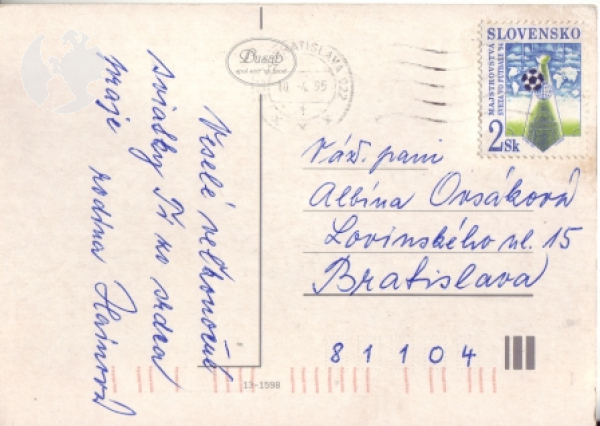 Veselé veľkonočné
sviatky Ti zo srdca
praje rodina Hainová
Busep
BRATISLAVA 322
4. 95
SLOVENSKO
MAJSTROVSTVÁ
SVETA VO FUTBALE '94
2 Sk
Váž. pani
Albína Orsáková
Lovinského ul. 15
Bratislava
81104
13-1598